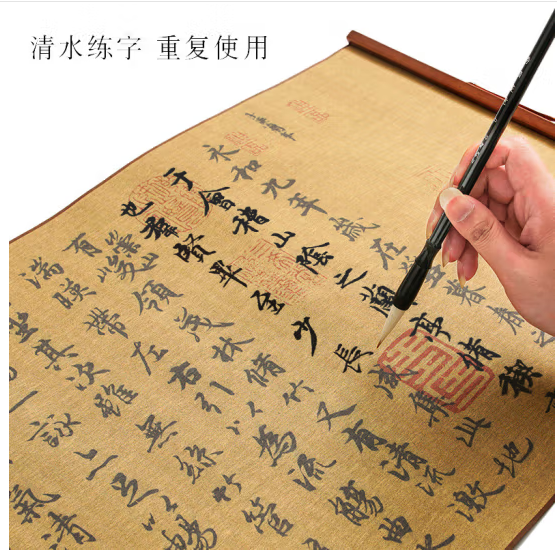 清水练字 重复使用
永和九年歲在癸丑暮春
于會稽山陰之蘭亭脩禊
也羣賢畢至少長咸集此地
有崇山峻領茂林脩竹又有清流激
湍暎帶左右引以為流觴曲水
坐其次雖無絲竹管
一詠亦足以暢
氣清